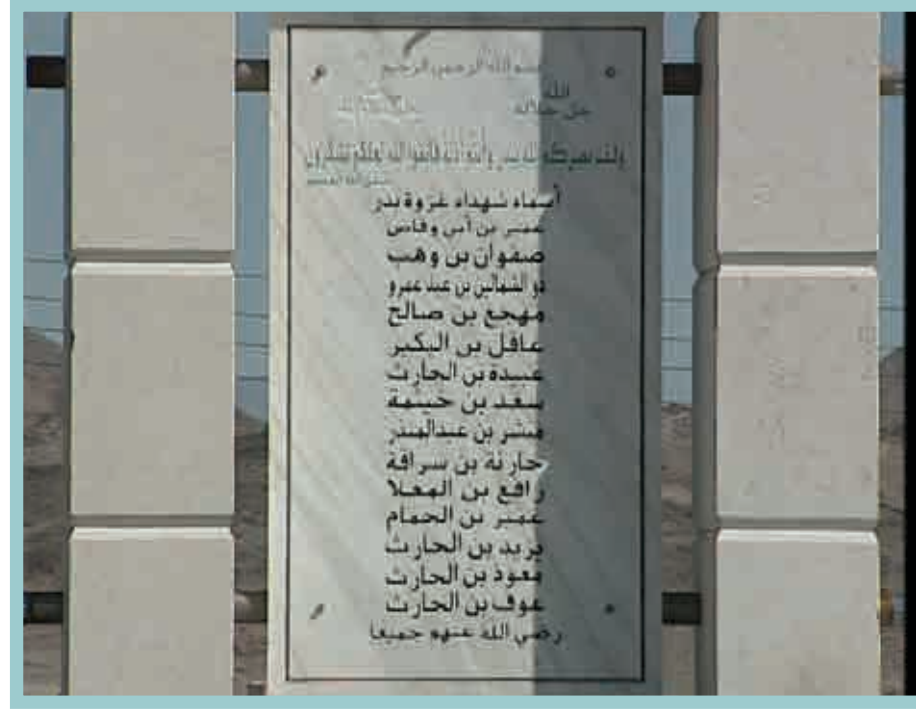 بسم الله الرحمن الرحيم
الله
جل جلاله
ولقد نصركم الله ببدر وأنتم أذلة فاتقوا الله لعلكم تشكرون
صدق الله العظيم
أسماء شهداء غزوة بدر
عمير بن أبي وقاص
صفوان بن وهب
ذو الشمالين بن عبد عمرو
مهجع بن صالح
عاقل بن البكير
عبيدة بن الحارث
سعد بن خيثمة
مبشر بن عبدالمنذر
حارثة بن سراقة
رافع بن المعلا
عمير بن الحمام
يزيد بن الحارث
معوذ بن الحارث
عوف بن الحارث
رضي الله عنهم جميعا